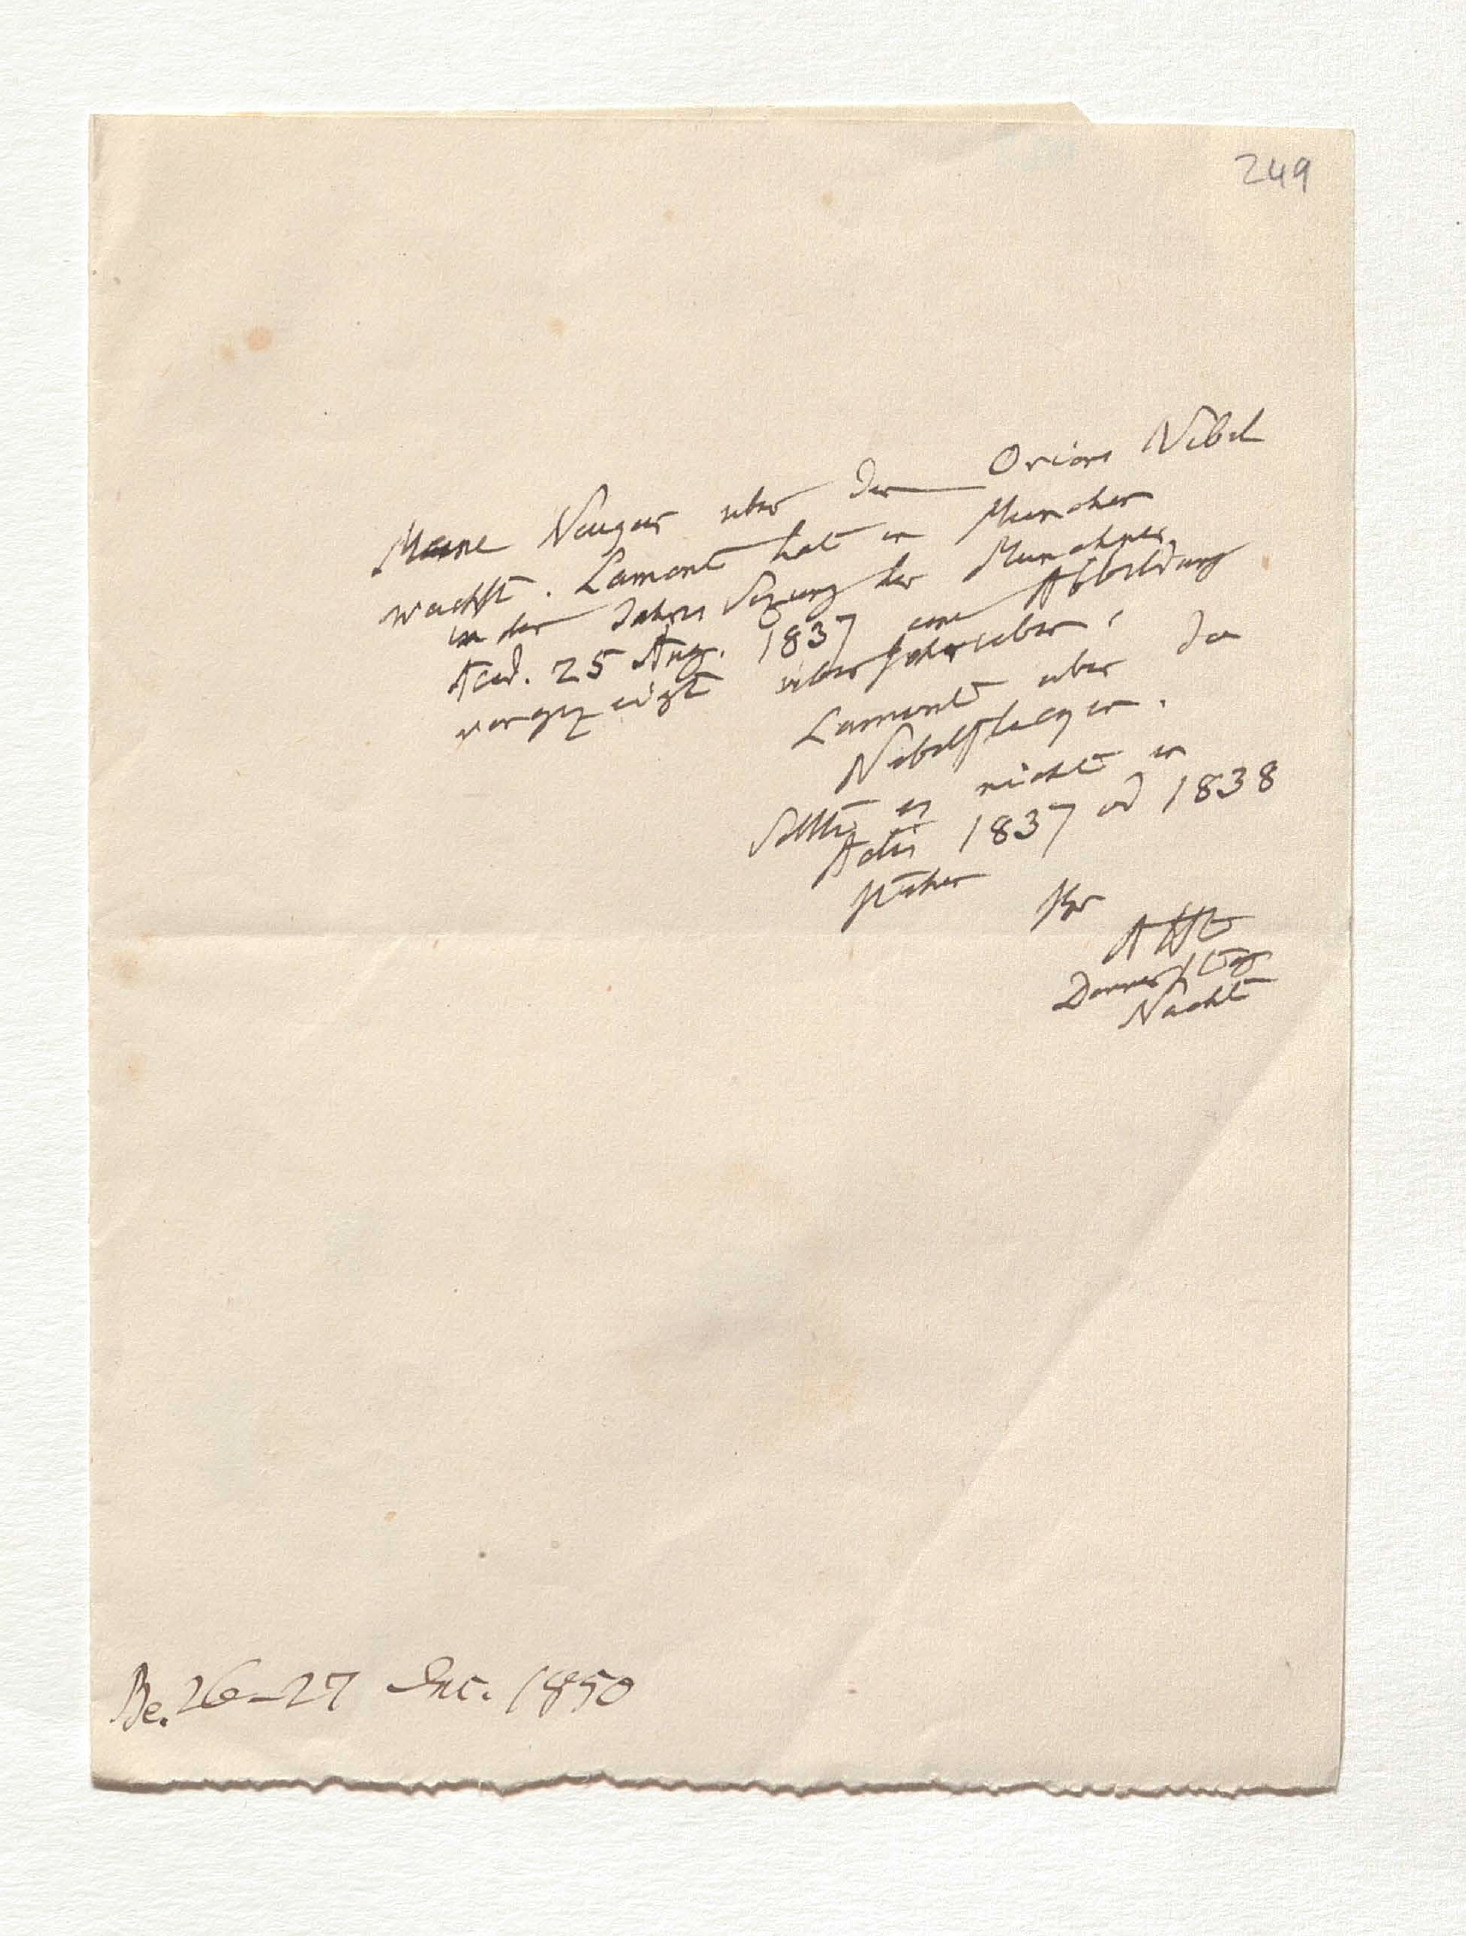 249
Meine Neugier über den Orions Nebel
wächst. Lamont hat in München
in der Jahres Sizung der Münchner
Acad. 25 Aug. 1837 eine Abbildung
vorgezeigt überschrieben:
Lamont über die
Nebelflecken.
Sollte es nicht in
Actis 1837 od 1838
stehen
Ihr
AHt
Donnerstag
Nacht
Be. 26–27 Dec. 1850